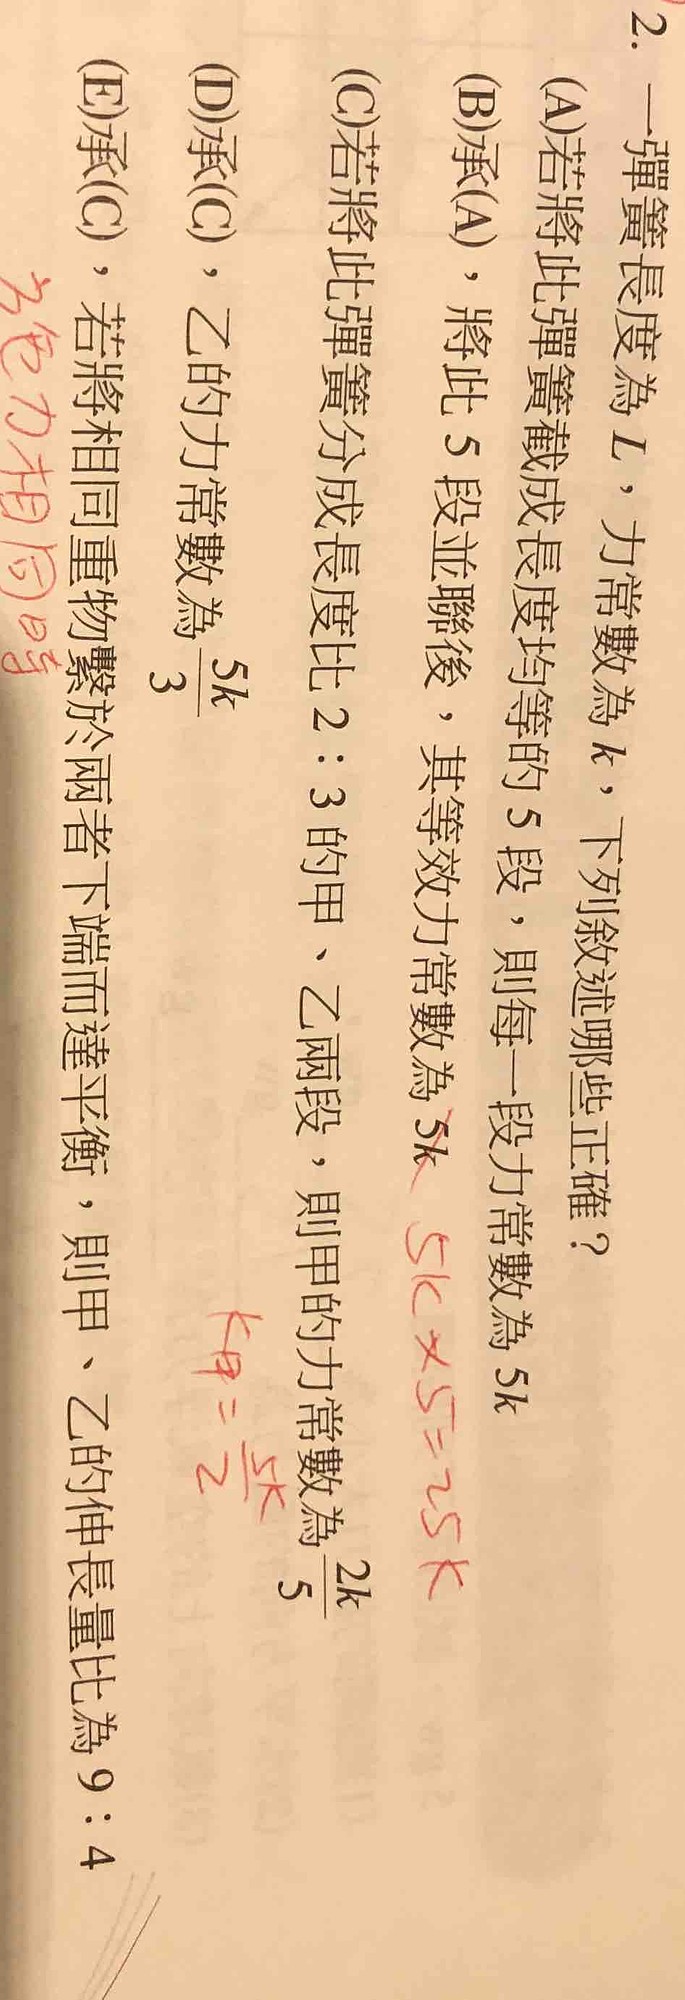 2. 一彈簧長度為 L，力常數為 k，下列敘述哪些正確？
(A)若將此彈簧截成長度均等的 5 段，則每一段力常數為 5k
(B)承(A)，將此 5 段並聯後，其等效力常數為 5k 5k×5=25k
(C)若將此彈簧分成長度比 2：3 的甲、乙兩段，則甲的力常數為 2k/5
k甲 = 5k/2
(D)承(C)，乙的力常數為 5k/3
(E)承(C)，若將相同重物繫於兩者下端而達平衡，則甲、乙的伸長量比為 9：4
力相同時